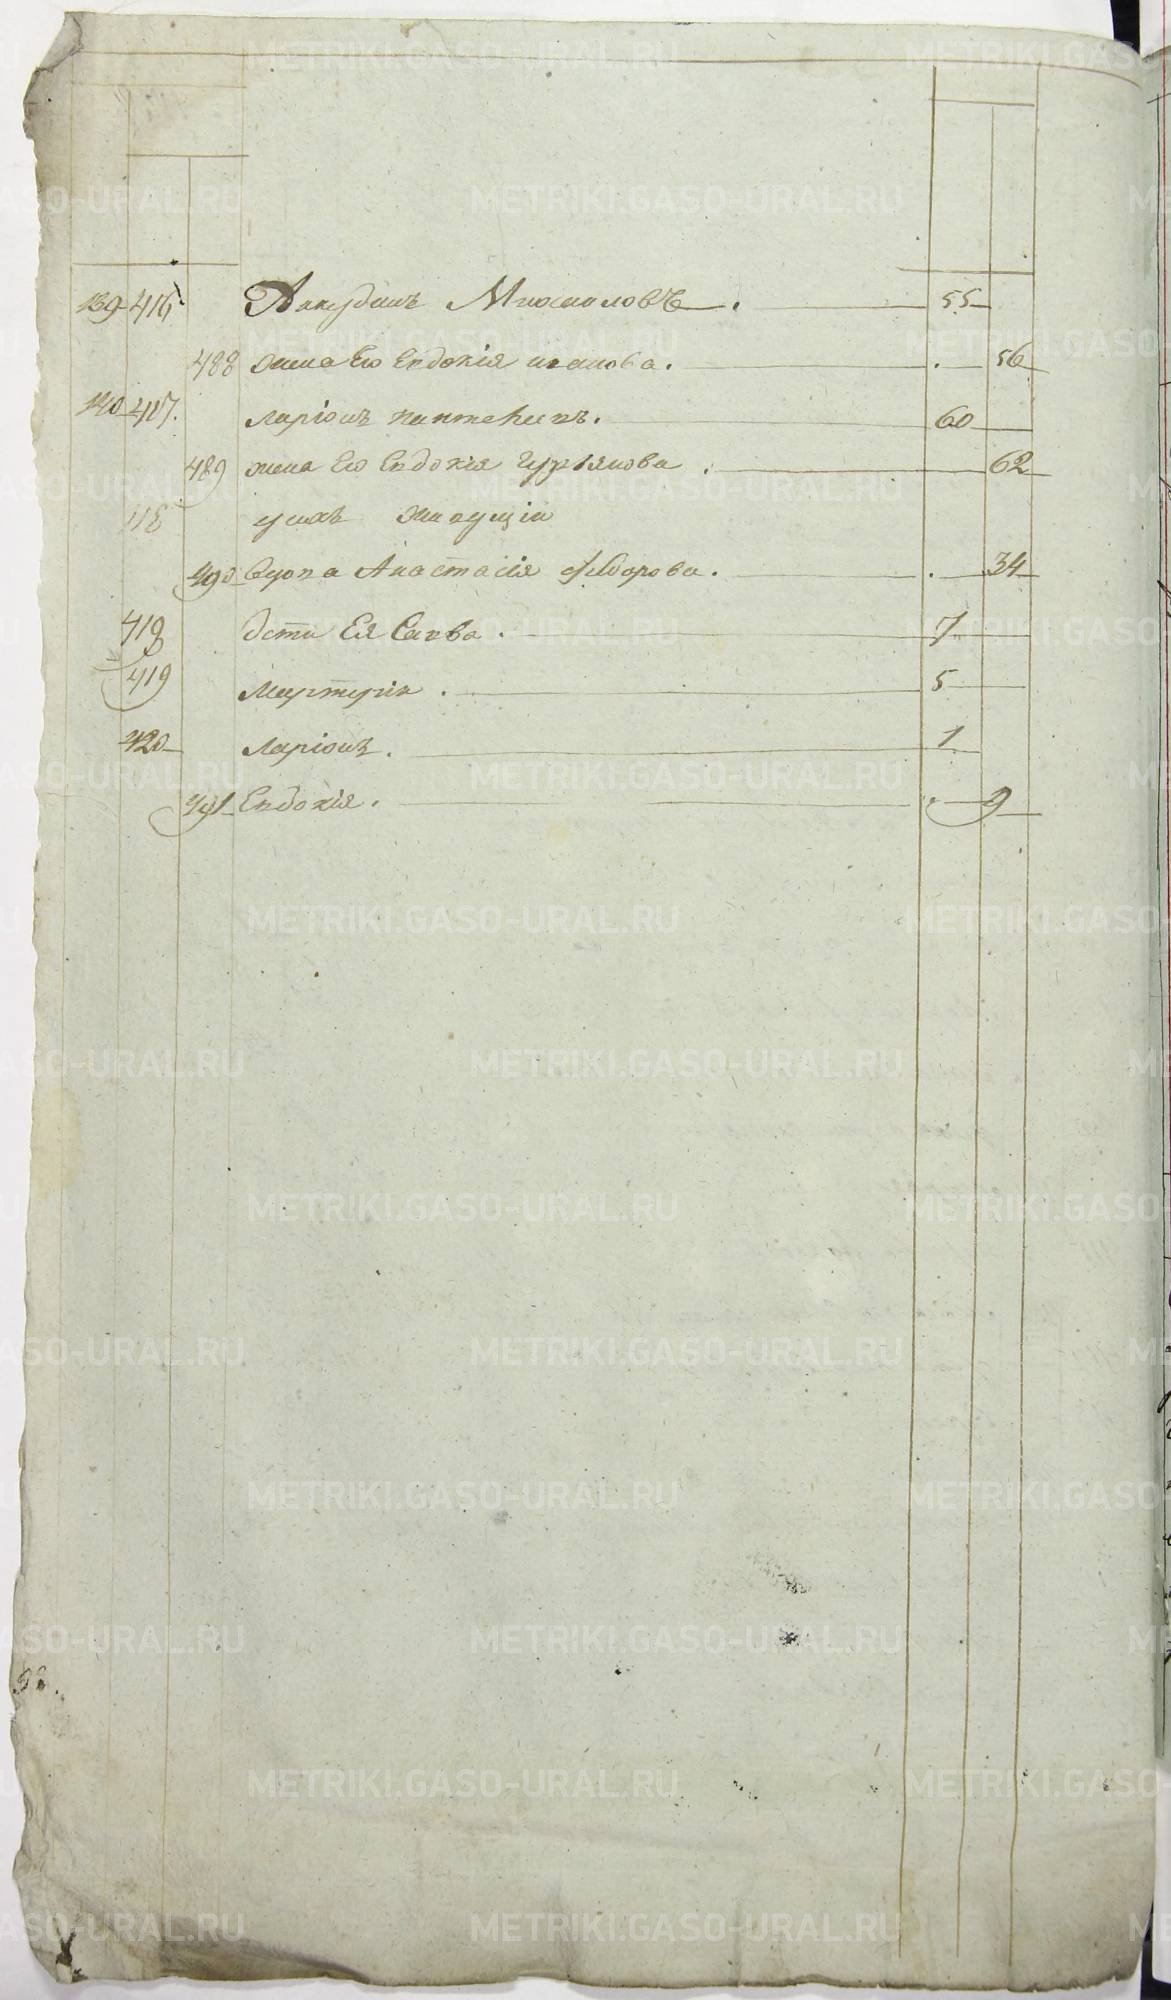 139 416 Анкудинъ Михаиловъ. 55
488 жена Ево Евдокія иванова. 56
140 417. ларіонъ пантелеивъ. 60
489 жена Ево Евдокія Гурьянова. 62
118 унихъ живущіи
490 вдова Анастасія Ѳедорова. 34
418 дети Ея Савва. 7
419 5
420 ларіонъ. 1
491 Евдокія. 9
METRIKI.GASO-URAL.RU